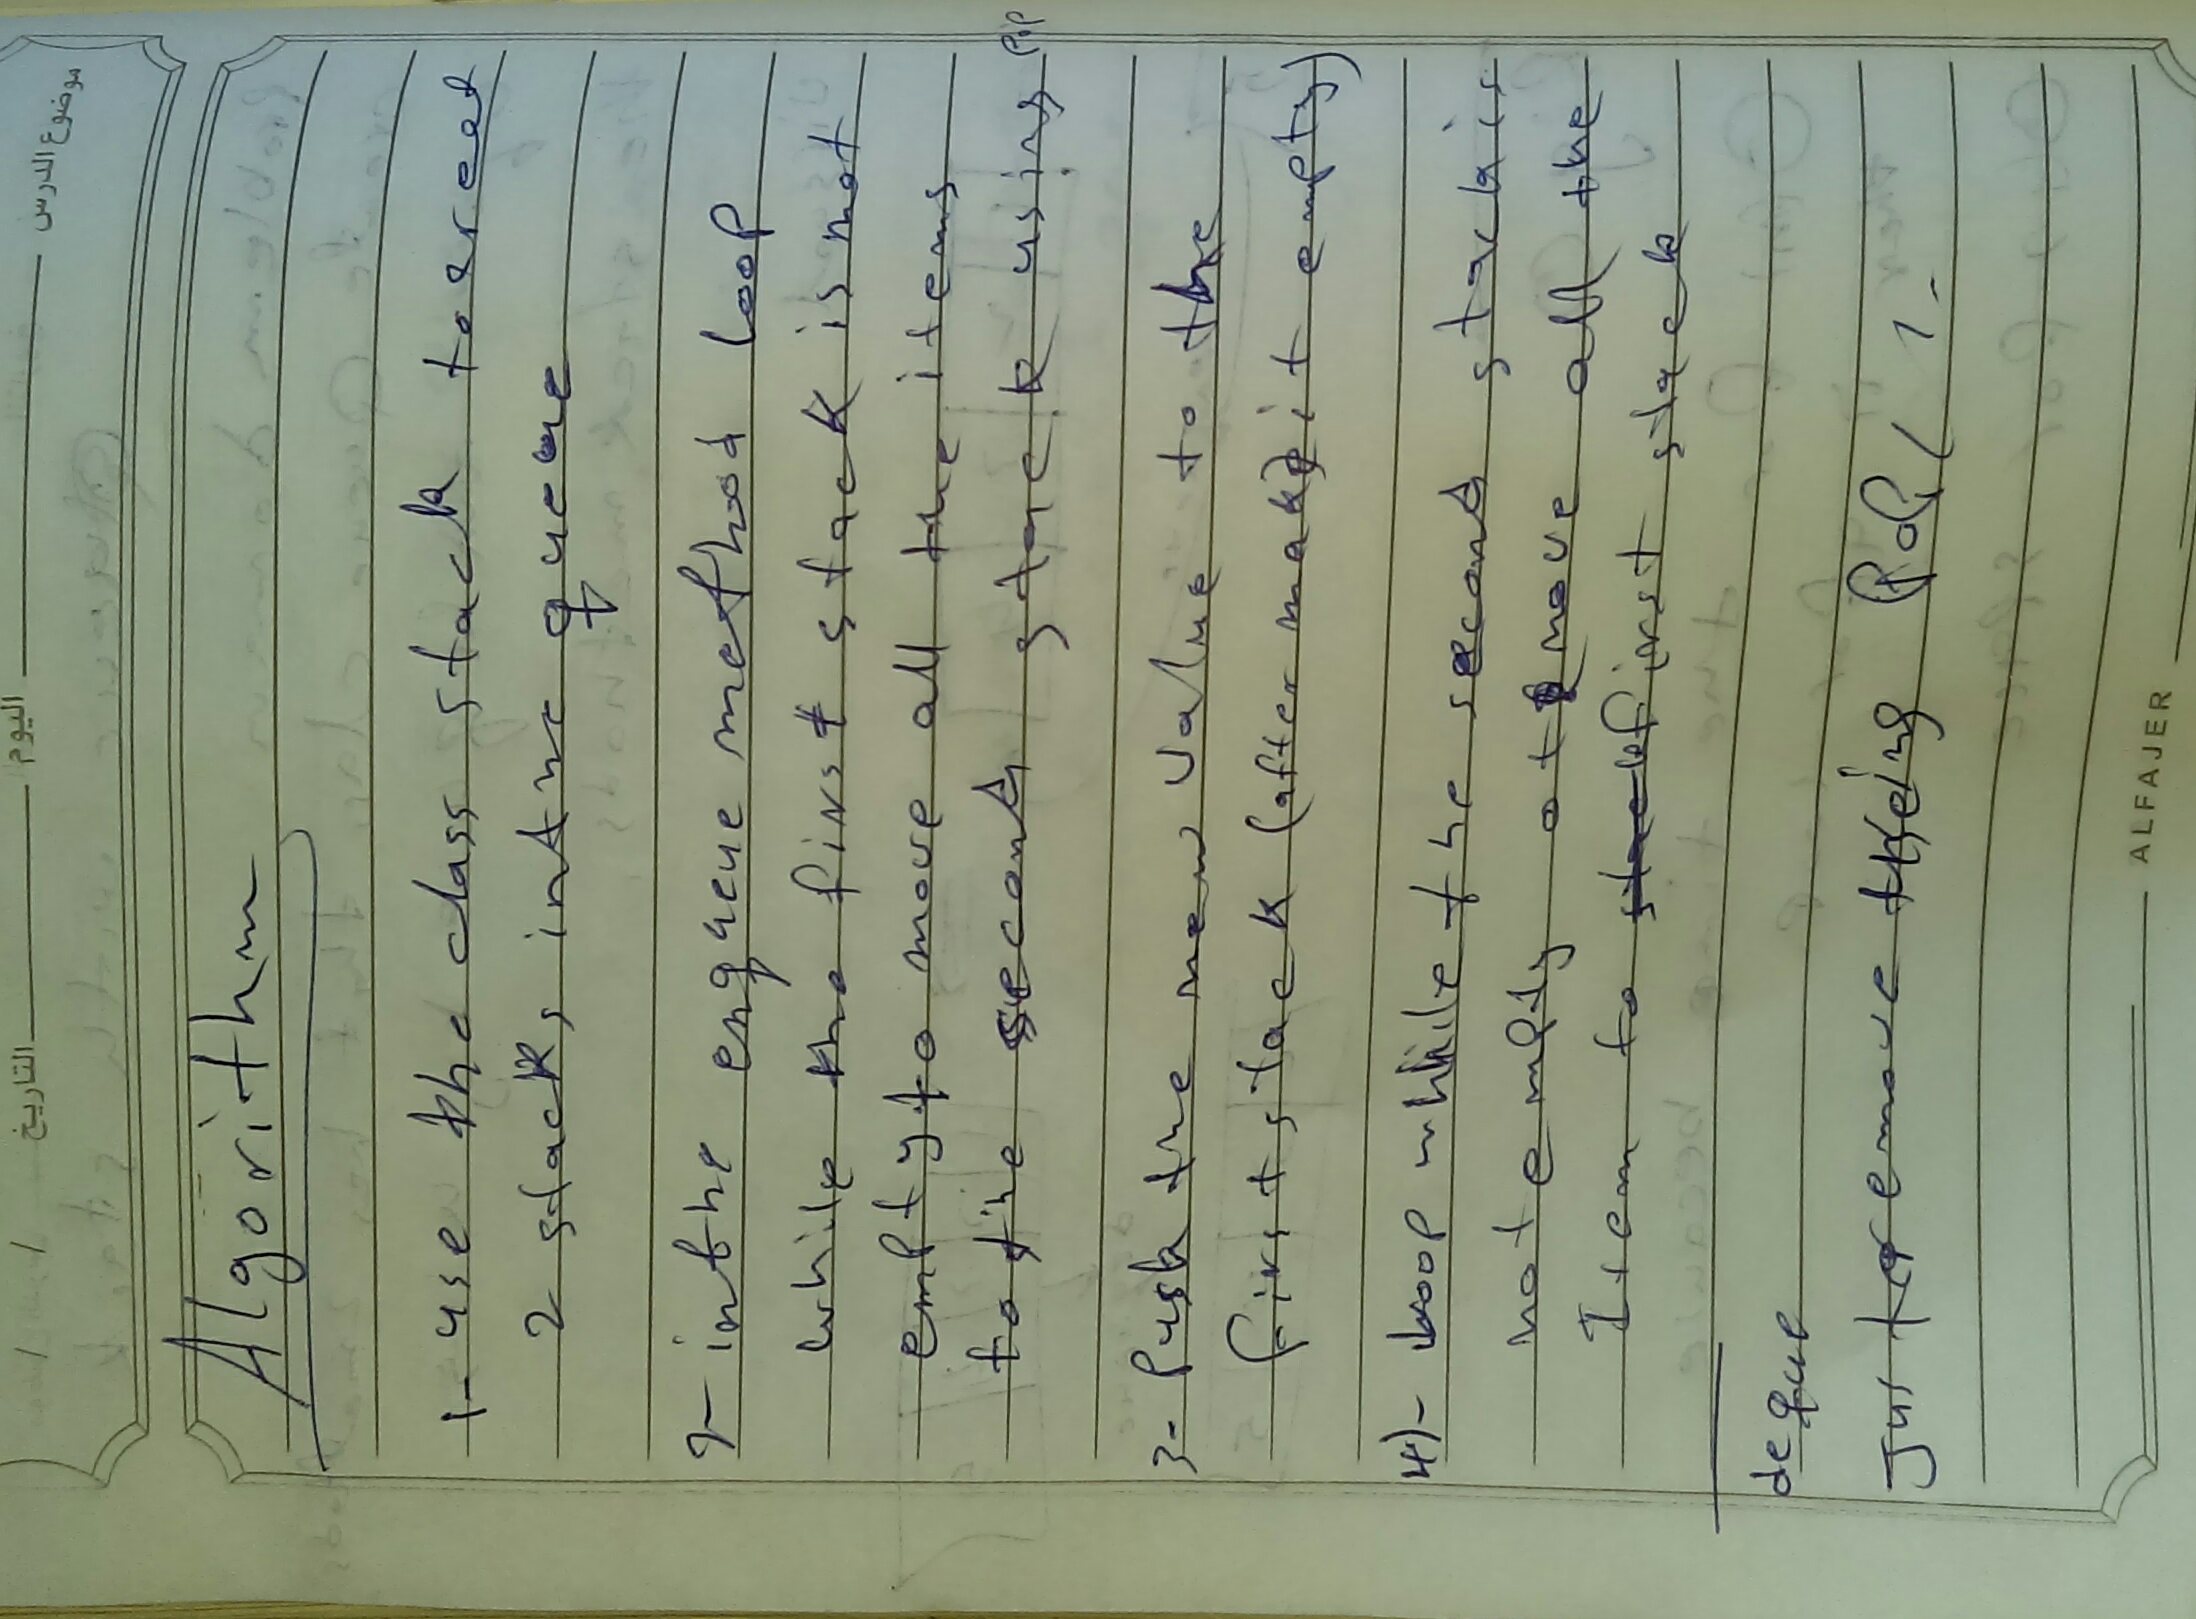 موضوع الدرس اليوم التاريخ
Algorithm
1- use the class stack to creat
2 stacks in the queue
2- in the enqueue method loop
while the first stack is not
empty to move all the items
to the second stack using pop
3- Push the new value to the
first stack (after make it empty)
4)- Loop while the second stack is
not empty ot move all the
Item to first stack
deque
Just remove using Pop( ).
ALFAJER